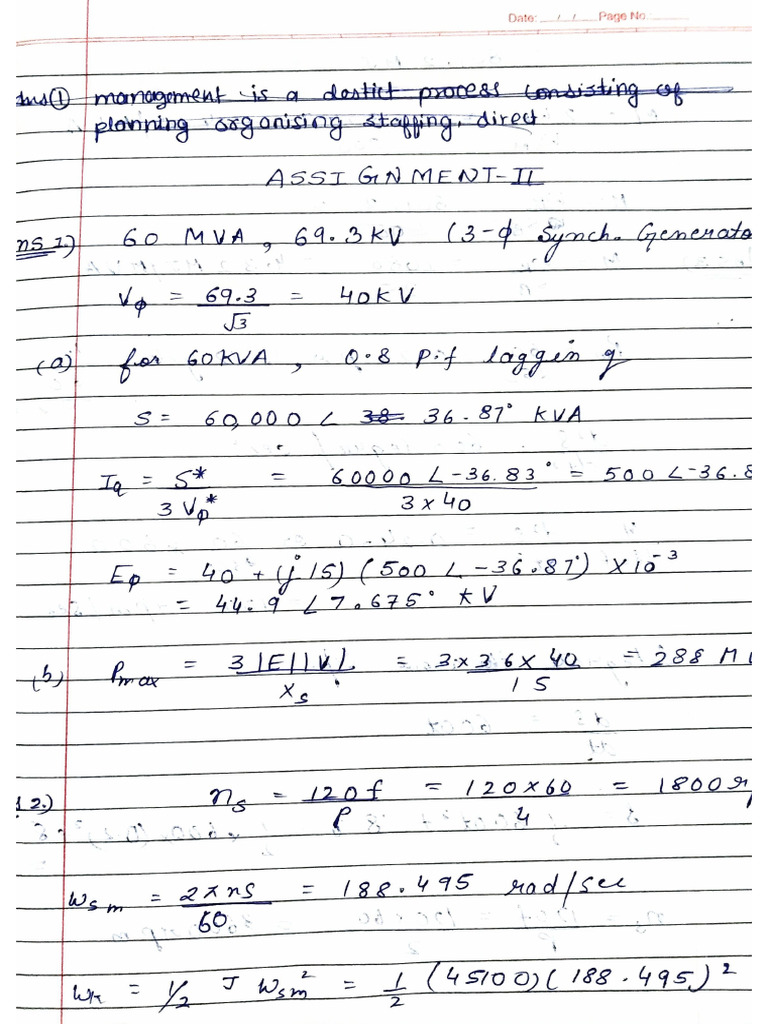 Date: / / Page No.
Ans ① management is a destict process consisting of
planning organising staffing, direct
ASSIGNMENT-II
ns 1.) 60 MVA, 69.3KV (3-ϕ Synch. Generato
Vϕ = 69.3/√3 = 40KV
(a) for 60KVA, 0.8 p.f laggeing
S = 60,000 ∠ 38 36.87° KVA
Iq = S*/3Vϕ* = 60000 ∠-36.83°/3×40 = 500 ∠-36.8
Eϕ = 40 + (j 15) (500 ∠ -36.87°) ×10⁻³
= 44.9 ∠7.675° KV
(b) Pmax = 3|E||V|/Xs = 3×36×40/15 = 288 M
2.) ns = 120f/P = 120×60/4 = 1800r
Wsm = 2πns/60 = 188.495 rad/sec
Wk = 1/2 J Wsm² = 1/2 (45100)(188.495)²